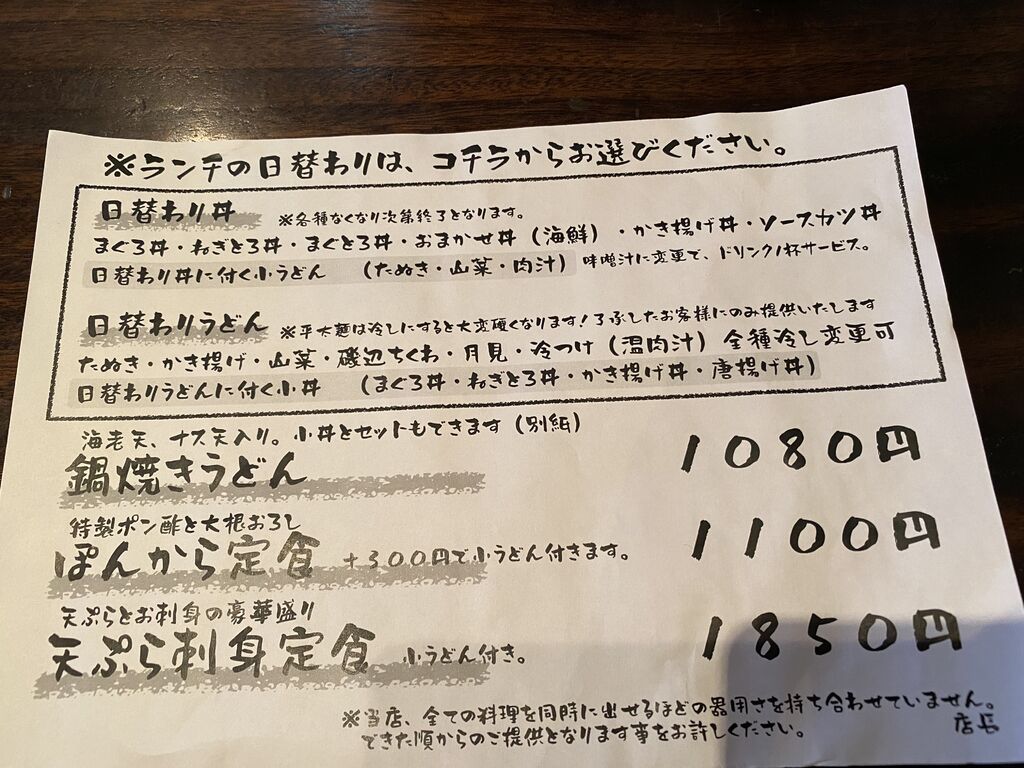 ※ランチの日替わりは、コチラからお選びください。
日替わり丼 ※各種なくなり次第終了となります。
まぐろ丼・ねぎとろ丼・まぐとろ丼・おまかせ丼(海鮮)・かき揚げ丼・ソースカツ丼
日替わり丼に付く小うどん (たぬき・山菜・肉汁) 味噌汁に変更で、ドリンク1杯サービス。
日替わりうどん ※平太麺は冷しにすると大変硬くなります!了承したお客様にのみ提供いたします
たぬき・かき揚げ・山菜・磯辺ちくわ・月見・冷つけ(温肉汁)全種冷し変更可
日替わりうどんに付く小丼 (まぐろ丼・ねぎとろ丼・かき揚げ丼・唐揚げ丼)
海老天、ナス天入り。小丼とセットもできます(別紙)
鍋焼きうどん 1080円
特製ポン酢と大根おろし
ぽんから定食 +300円で小うどん付きます。 1100円
天ぷらとお刺身の豪華盛り
天ぷら刺身定食 小うどん付き。 1850円
※当店、全ての料理を同時に出せるほどの器用さを持ち合わせていません。
できた順からのご提供となります事をお許しください。 店長